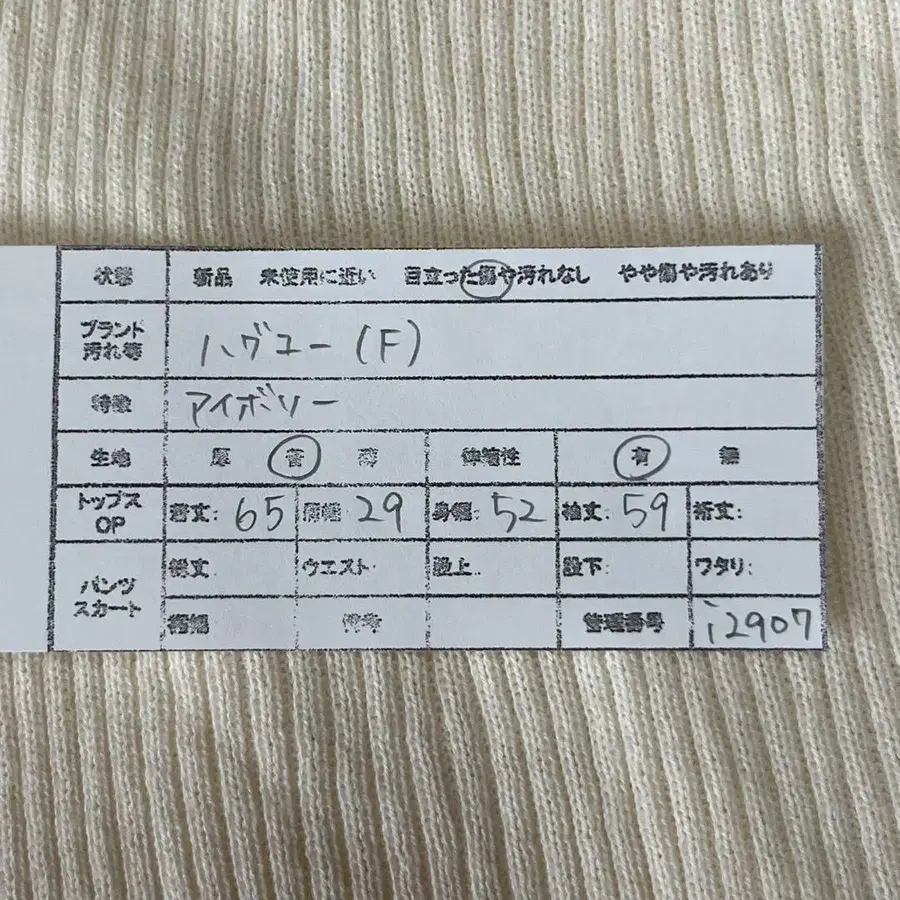 状態 新品 未使用に近い 目立った傷や汚れなし やや傷や汚れあり
ブランド
汚れ等
ハグユー(F)
特徴 アイボリー
生地 厚 普 薄 伸縮性 有 無
トップス
OP
着丈: 65 肩幅: 29 身幅: 52 袖丈: 59 裄丈:
パンツ
スカート
総丈 ウエスト: 股上 股下: ワタリ:
裾幅 備考 管理番号 i2907